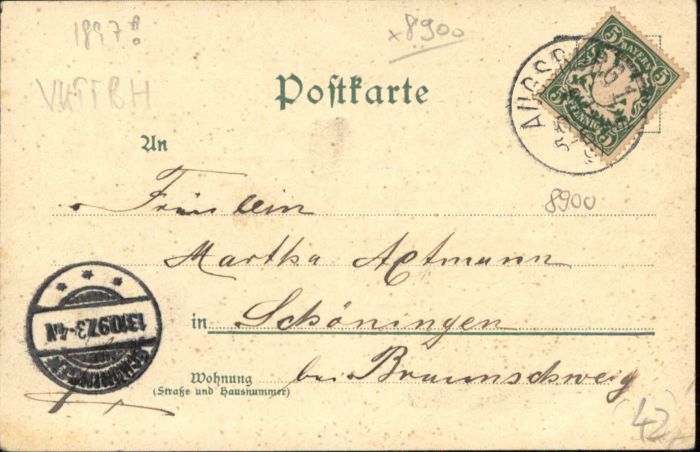 1897?
x8900
VKTTBH
Postkarte
AUGSBURG
5 BAYERN 5
5 PFENNIG 5
An
8900
Fräulein
Martha
in Schöningen
13.10.97.3-4N.
SCHÖNINGEN
Wohnung bei Braunschweig
(Straße und Hausnummer)
42